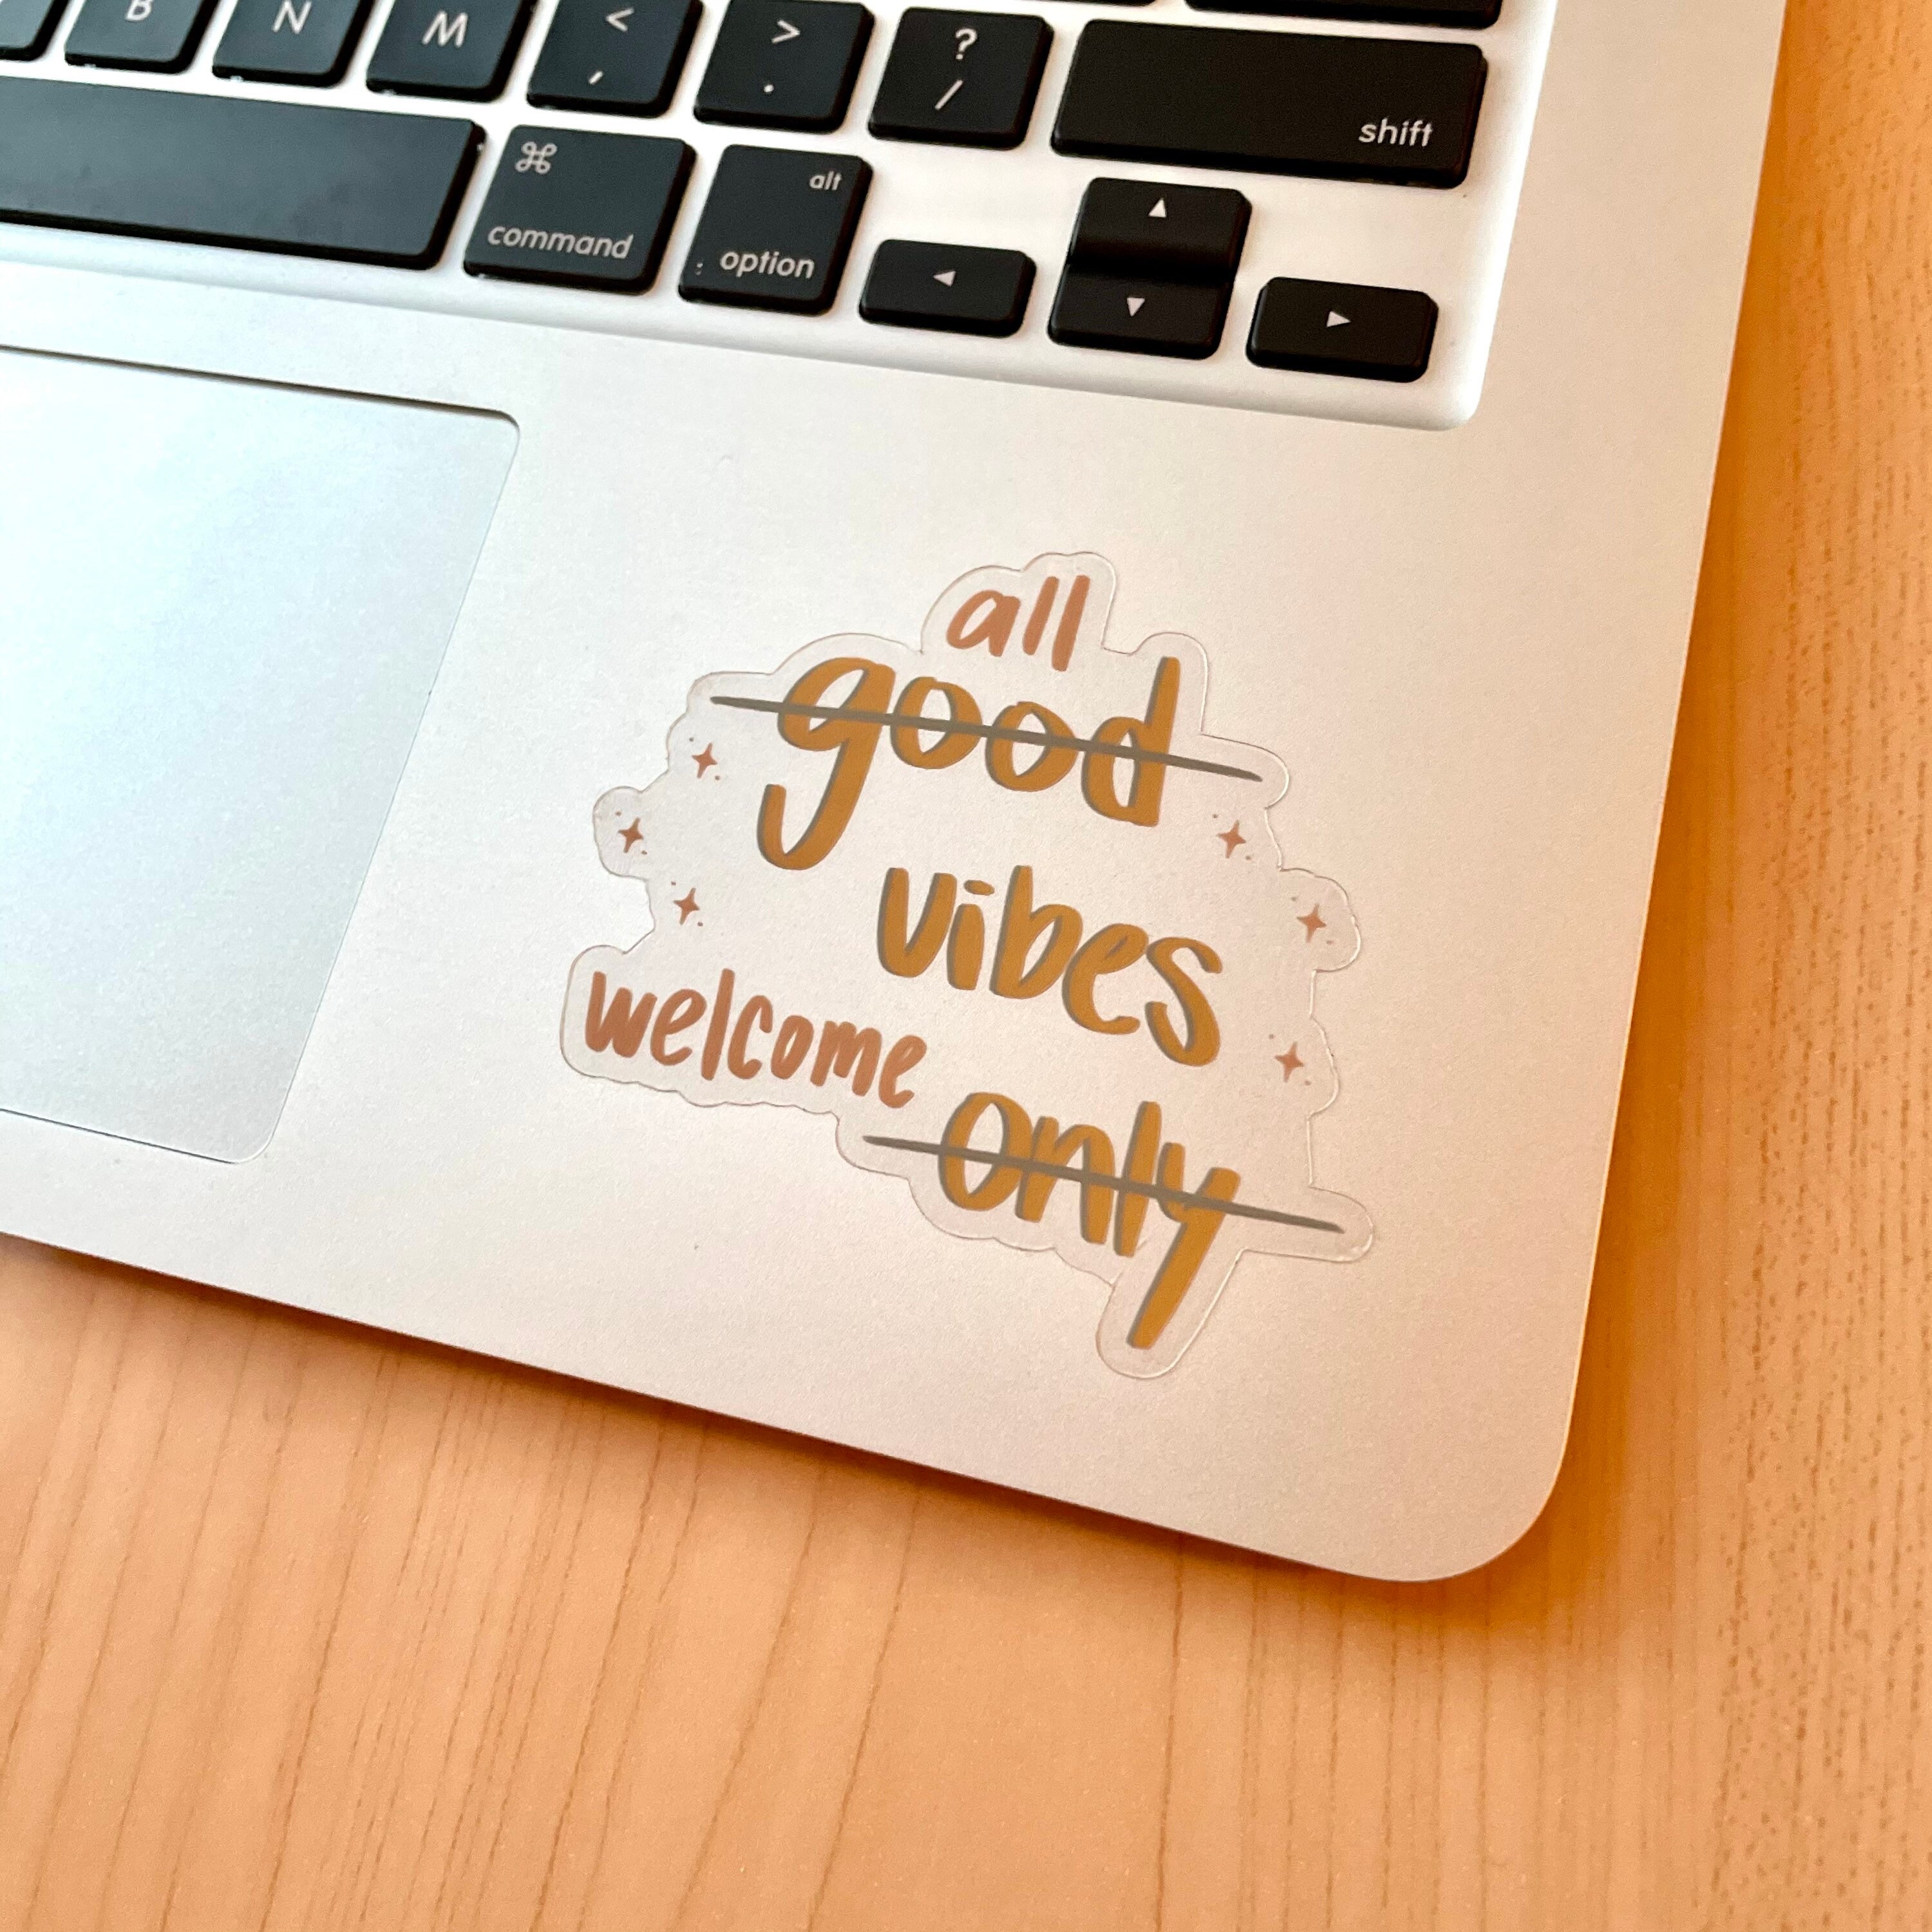 B N M < , > . ? / shift
⌘ command alt option ◄ ▲ ▼ ►
all
good
vibes
welcome
only